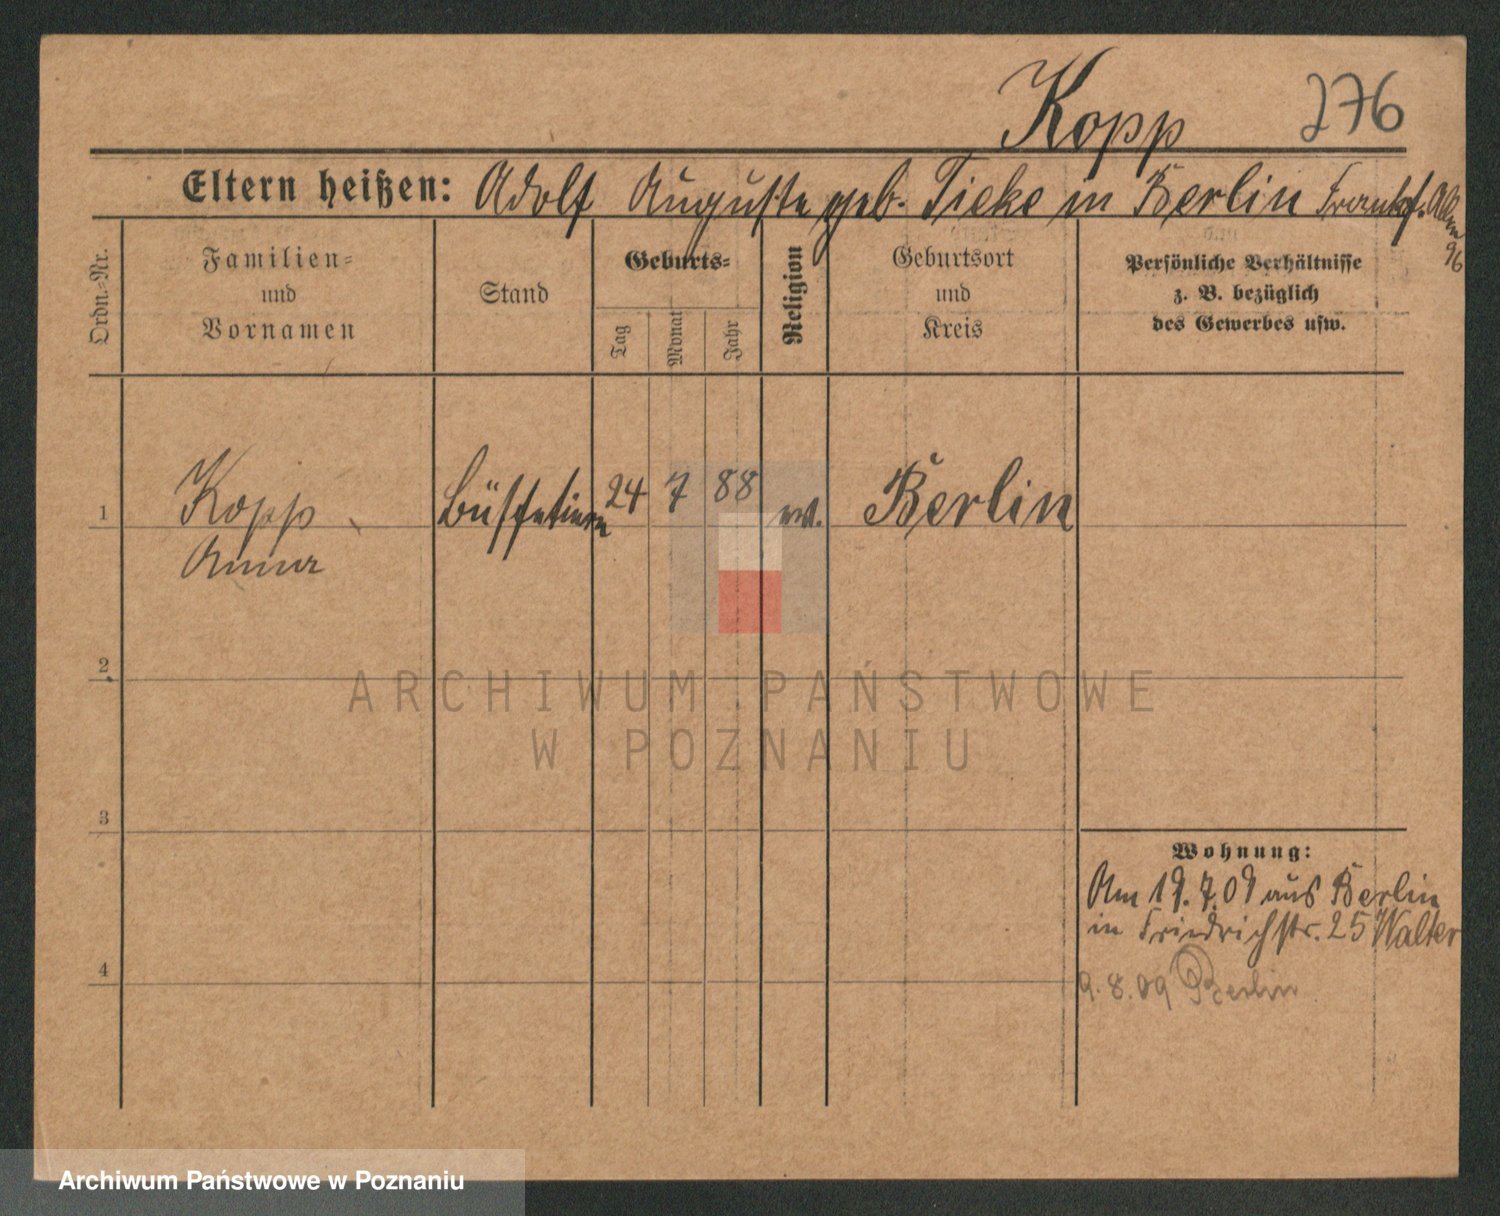 Kopp 276
Eltern heißen: Adolf Auguste geb. Tieke in Berlin Frankf. Allee 96
Ordn.-Nr.
Familien-
und
Vornamen
Stand
Geburts-
Tag
Monat
Jahr
Religion
Geburtsort
und
Kreis
Persönliche Verhältnisse
z. B. bezüglich
des Gewerbes usw.
1 Kopp Büffetiere 24 7 88 ev. Berlin
Anna
2
ARCHIWUM PAŃSTWOWE
W POZNANIU
3
Wohnung:
Am 19.7.09 aus Berlin
in Friedrichstr. 25 Walter
4
9.8.09 Berlin
Archiwum Państwowe w Poznaniu